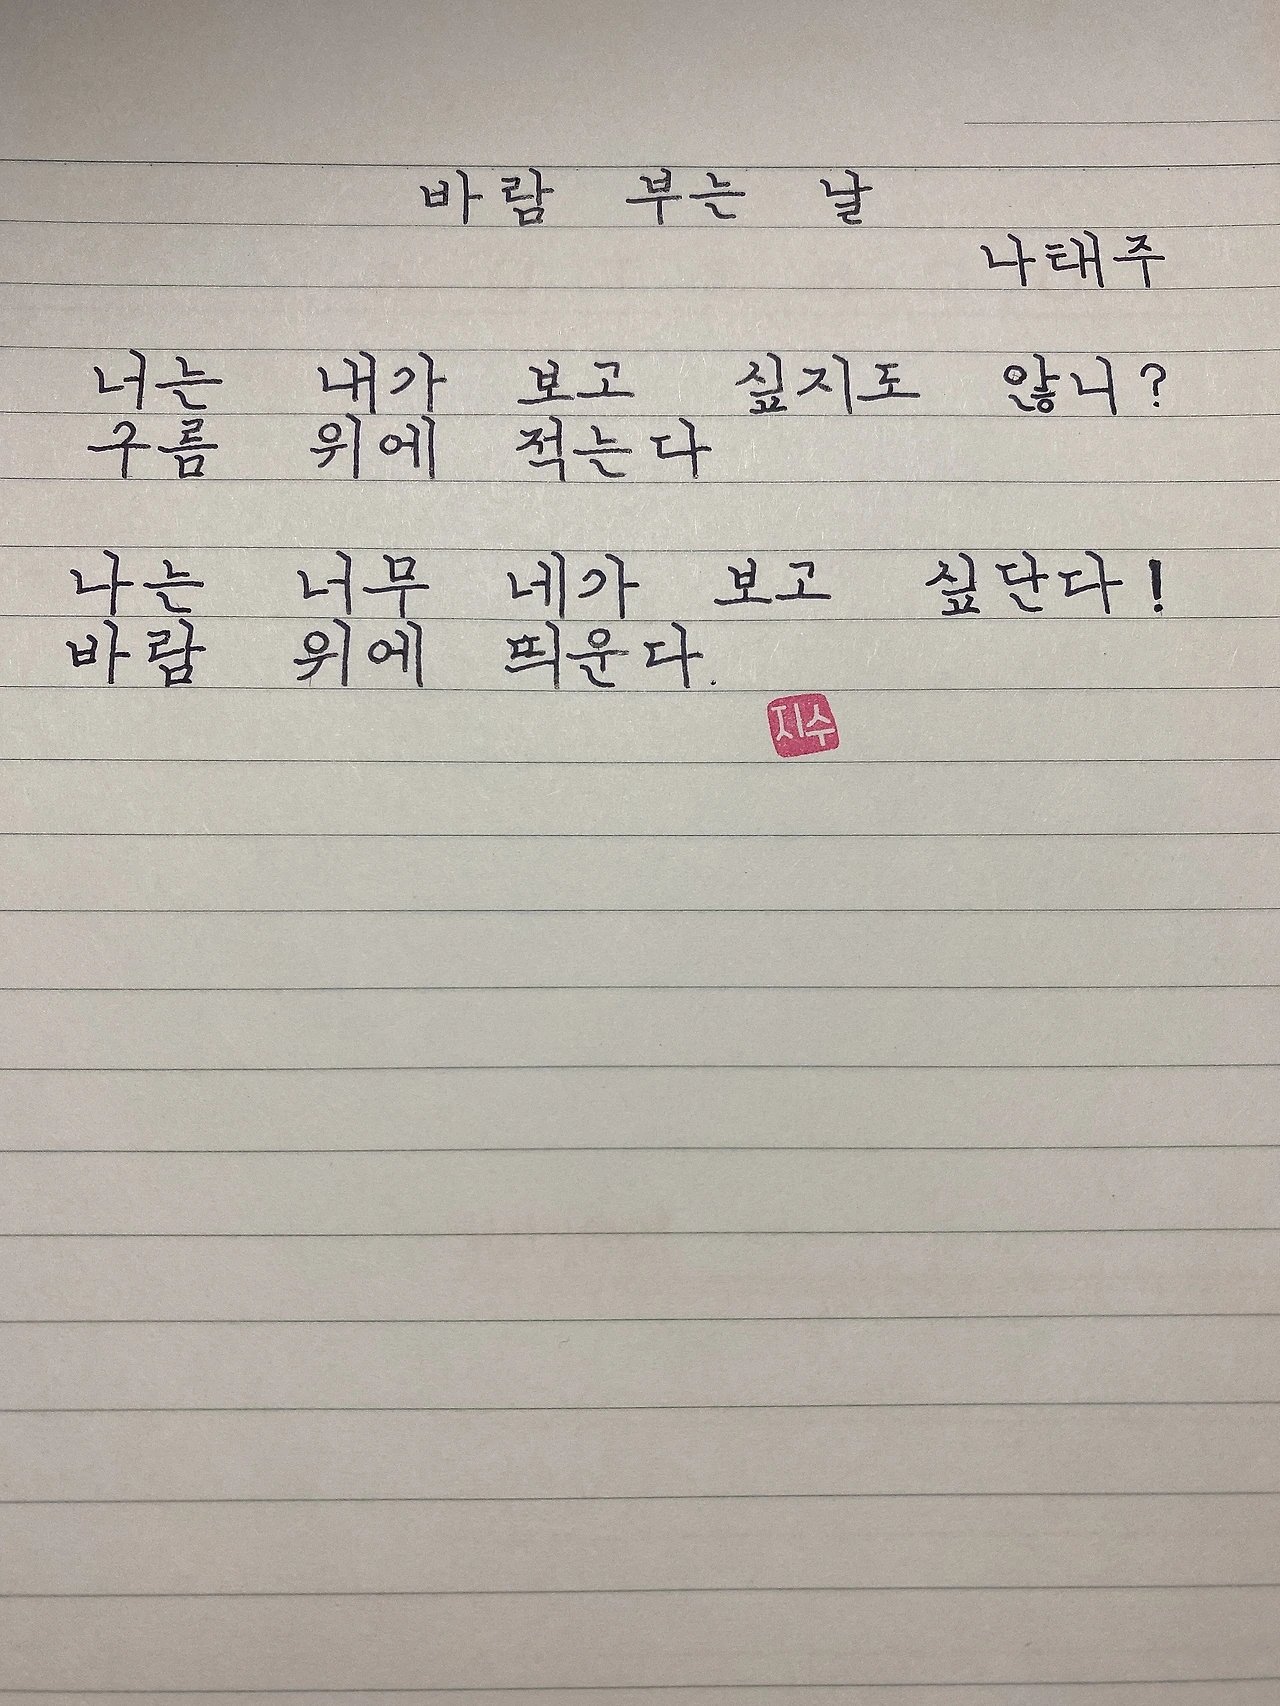 바람 부는 날
나태주
너는 내가 보고 싶지도 않니?
구름 위에 적는다
나는 너무 네가 보고 싶단다!
바람 위에 띄운다.
지수